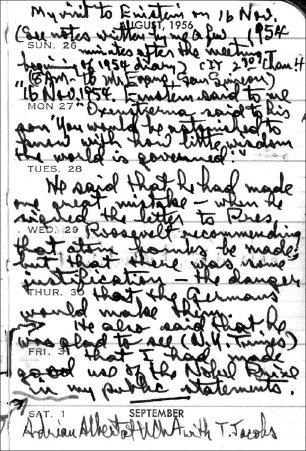 My visit to Einstein on 16 Nov.
AUGUST, 1956
1954
(See notes written by me a few
SUN. 26
minutes after the meeting,
beginning of 1954 diary)
"16 Nov. 1954 Einstein said to me
MON. 27
"Oxenstierna said to his
son 'You would be astonished to
know with how little wisdom
the world is governed'."
TUES. 28
He said that he had made
one great mistake – when he
signed the letter to Pres.
WED. 29
Roosevelt recommending
that atom bombs be made;
but that there was some
justification – the danger
THUR. 30
that the Germans
would make them.
He also said that he
was glad to see (N.Y. Times)
FRI. 31
that I had made
good use of the Nobel Prize
in my public statements.
SAT. 1
SEPTEMBER
with T. Jacobs